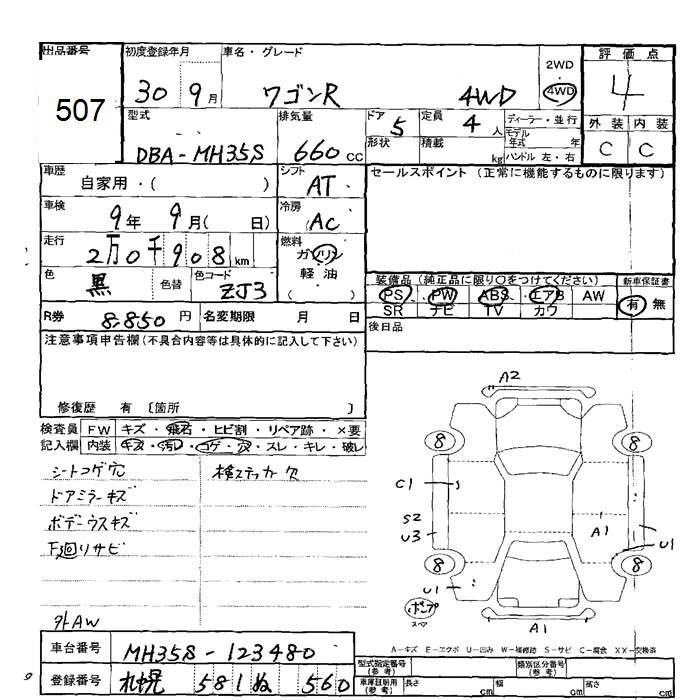 出品番号 初度登録年月 車名・グレード 2WD 評価点
507 30 9月 ワゴンR 4WD 4WD 4
型式 排気量 ドア 5 定員 4人 ディーラー・並行 外装 内装
DBA-MH35S 660cc 形状 積載 kg モデル年式 年 ハンドル 左・右 C C
車歴 自家用・( ) シフト AT セールスポイント (正常に機能するものに限ります)
車検 9年 9月( 日) 冷房 AC
走行 2万0千908km 燃料 ガソリン 軽油 ( )
色 黒 色替 色コード ZJ3 装備品 (純正品に限り○をつけてください) 新車保証書
PS PW ABS エアB AW 有 無
R券 8,850円 名変期限 月 日 SR ナビ TV カワ
後日品
注意事項申告欄(不具合内容等は具体的に記入して下さい)
修復歴 有 〔箇所 〕
検査員 FW キズ・飛石・ヒビ割・リペア跡・×要
記入欄 内装 キズ・汚レ・コゲ・穴・スレ・キレ・破レ
シートコゲ穴 検ステッカー欠
ドアミラーキズ
ボデーウスキズ
下廻りサビ
外AW
A2
8 8
C1 S
S2
U3 A1 U1
8 8
U1
ポンプ
スペア
A1
A-キズ E-エクボ U-凹み W-補修跡 S-サビ C-腐食 XX-交換済
車台番号 MH35S-123480 型式指定番号(参考) 類別区分番号(参考)
登録番号 札幌 581 ぬ 560 車庫証明用(参考) 長さ cm 幅 cm 高さ cm